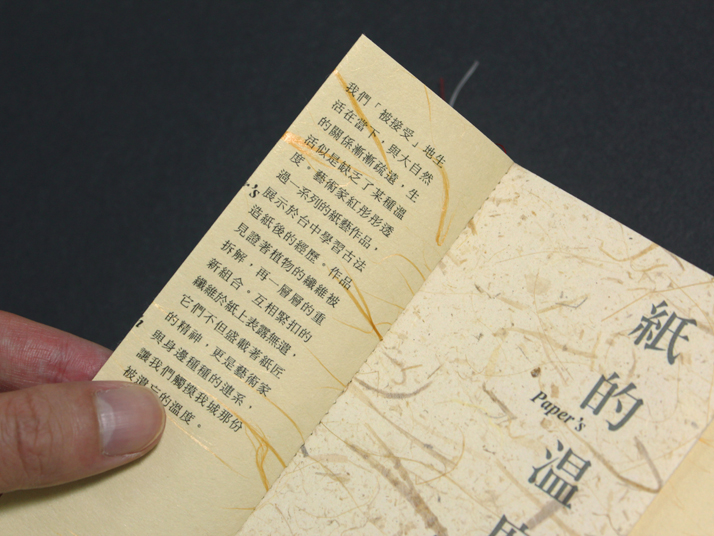 我們「被接受」地生
活在當下，與大自然
的關係漸漸疏遠，生
活似是缺乏了某種溫
度。藝術家紅彤彤透
過一系列的紙藝作品，
展示於台中學習古法
造紙後的經歷。作品
見證著植物的纖維被
拆解，再一層層的重
新組合，互相緊扣的
纖維於紙上表露無遺，
它們不但盛載著紙匠
的精神，更是藝術家
與身邊種種的連系，
讓我們觸摸我城那份
被遺忘的溫度。
紙的温
Paper's